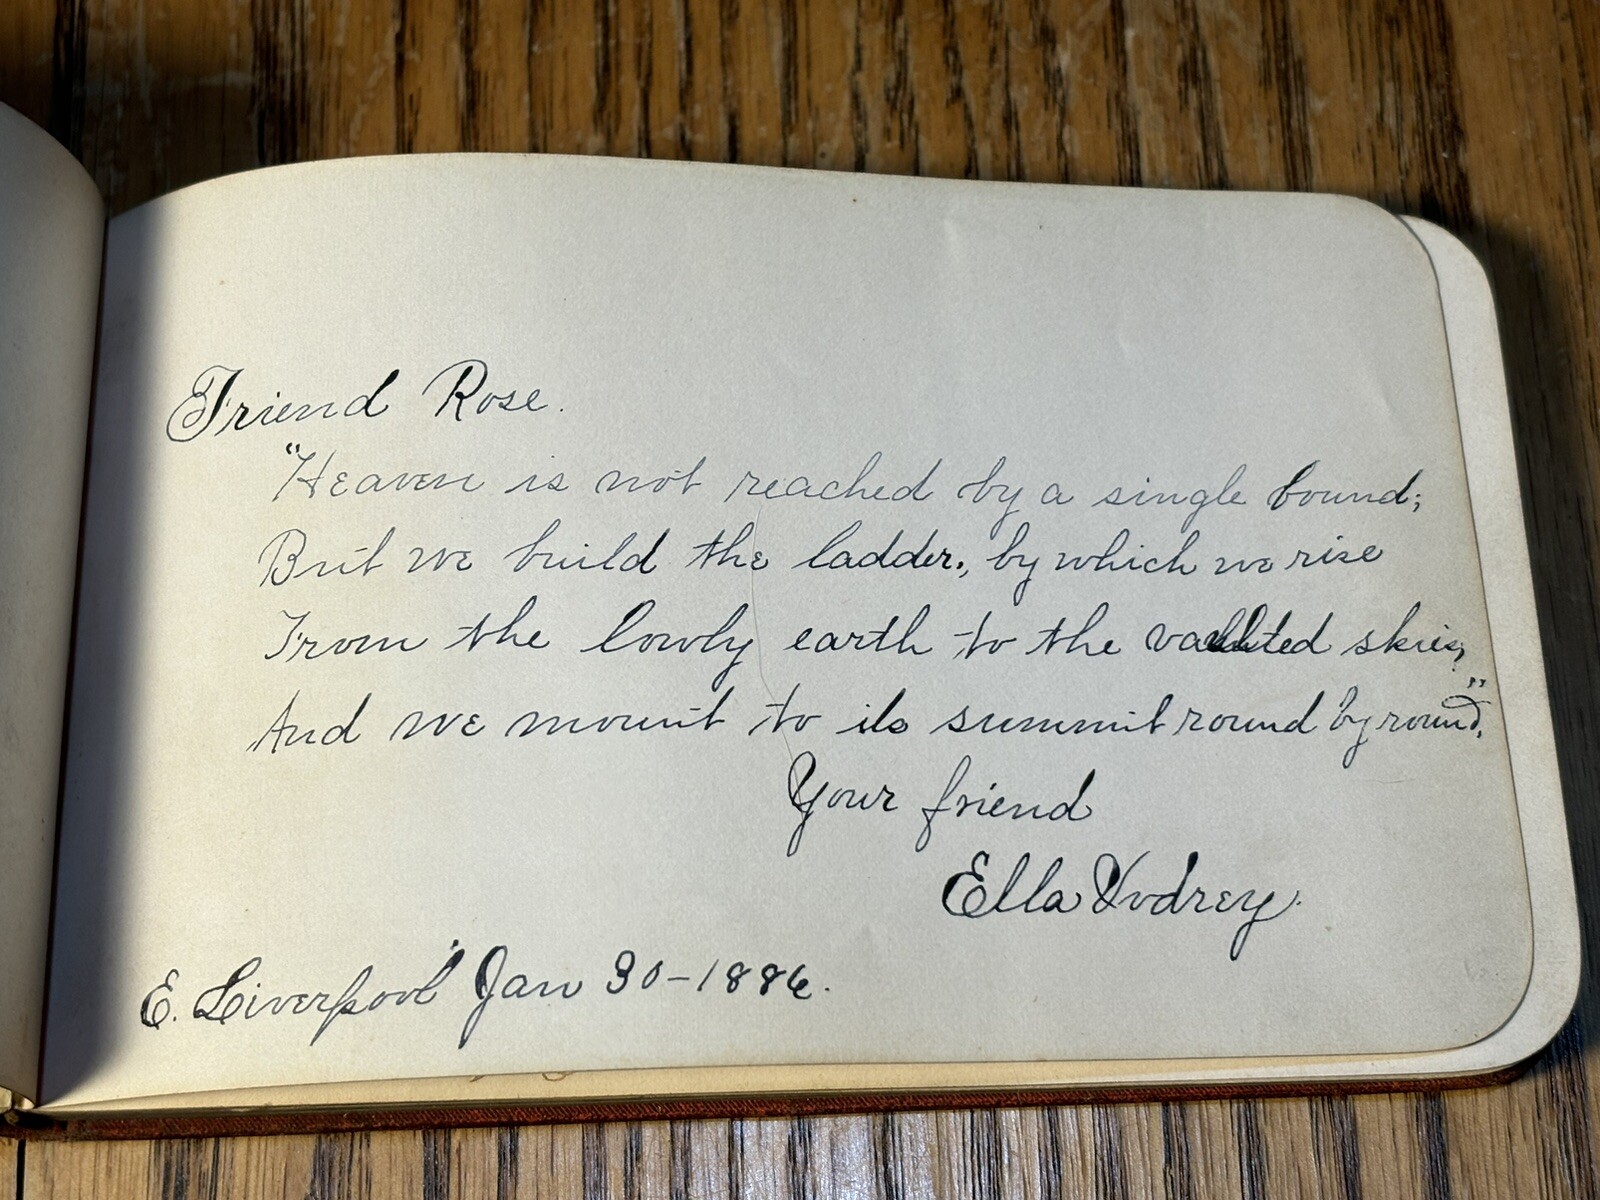 Friend Rose.
"Heaven is not reached by a single bound;
But we build the ladder, by which we rise
From the lowly earth to the vaulted skies,
And we mount to its summit round by round."
Your friend
Ella Vodrey.
E. Liverpool Jan 30-1886.